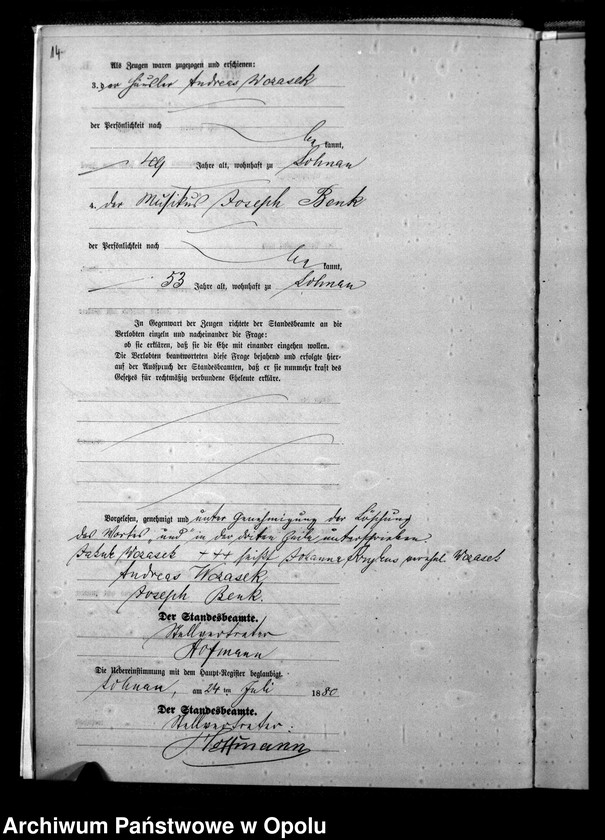 14
Als Zeugen waren zugezogen und erschienen:
3. der Häusler Andreas Wrasek
der Persönlichkeit nach
be kannt,
49 Jahre alt, wohnhaft zu Lohnau
4. der Musikus Joseph Benk
der Persönlichkeit nach
be kannt,
53 Jahre alt, wohnhaft zu Lohnau
In Gegenwart der Zeugen richtete der Standesbeamte an die
Verlobten einzeln und nacheinander die Frage:
ob sie erklären, daß sie die Ehe mit einander eingehen wollen.
Die Verlobten beantworteten diese Frage bejahend und erfolgte hier-
auf der Ausspruch der Standesbeamten, daß er sie nunmehr kraft des
Gesetzes für rechtmäßig verbundene Eheleute erkläre.
Vorgelesen, genehmigt und unter Genehmigung der Löschung
des Wortes „und“ in der dritten Zeile unterschrieben.
Wrasek +++ heißt verehel. Wrasek
Andreas Wrasek
Joseph Benk.
Der Standesbeamte.
Stellvertreter
Hofmann
Die Uebereinstimmung mit dem Haupt-Register beglaubigt.
Lohnau, am 24 ten Juli 1880
Der Standesbeamte.
Stellvertreter.
Hoffmann
Archiwum Państwowe w Opolu